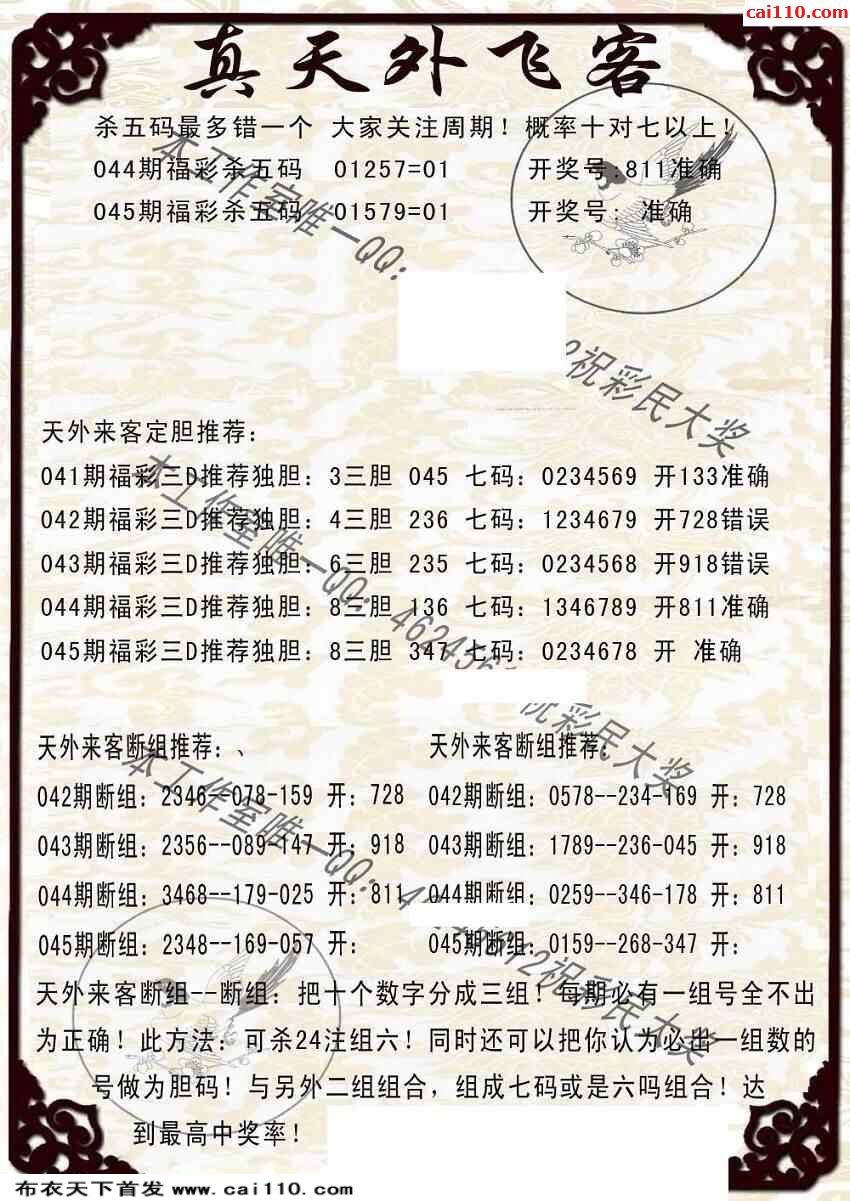 cai110.com
真天外飞客
杀五码最多错一个 大家关注周期！概率十对七以上！
044期福彩杀五码 01257=01 开奖号:811准确
045期福彩杀五码 01579=01 开奖号: 准确
本工作室唯一QQ:
祝彩民大奖
天外来客定胆推荐：
041期福彩三D推荐独胆：3三胆 045 七码：0234569 开133准确
042期福彩三D推荐独胆：4三胆 236 七码：1234679 开728错误
043期福彩三D推荐独胆：6三胆 235 七码：0234568 开918错误
044期福彩三D推荐独胆：8三胆 136 七码：1346789 开811准确
045期福彩三D推荐独胆：8三胆 347 七码：0234678 开 准确
本工作室唯一QQ:
彩民大奖
天外来客断组推荐：、 天外来客断组推荐：
042期断组：2346--078-159 开：728 042期断组：0578--234-169 开：728
043期断组：2356--089-147 开：918 043期断组：1789--236-045 开：918
044期断组：3468--179-025 开：811 044期断组：0259--346-178 开：811
045期断组：2348--169-057 开： 045期断组：0159--268-347 开：
本工作室唯一QQ:
祝彩民大奖
天外来客断组--断组：把十个数字分成三组！每期必有一组号全不出
为正确！此方法：可杀24注组六！同时还可以把你认为必出一组数的
号做为胆码！与另外二组组合，组成七码或是六吗组合！达
到最高中奖率！
布衣天下首发 www.cai110.com